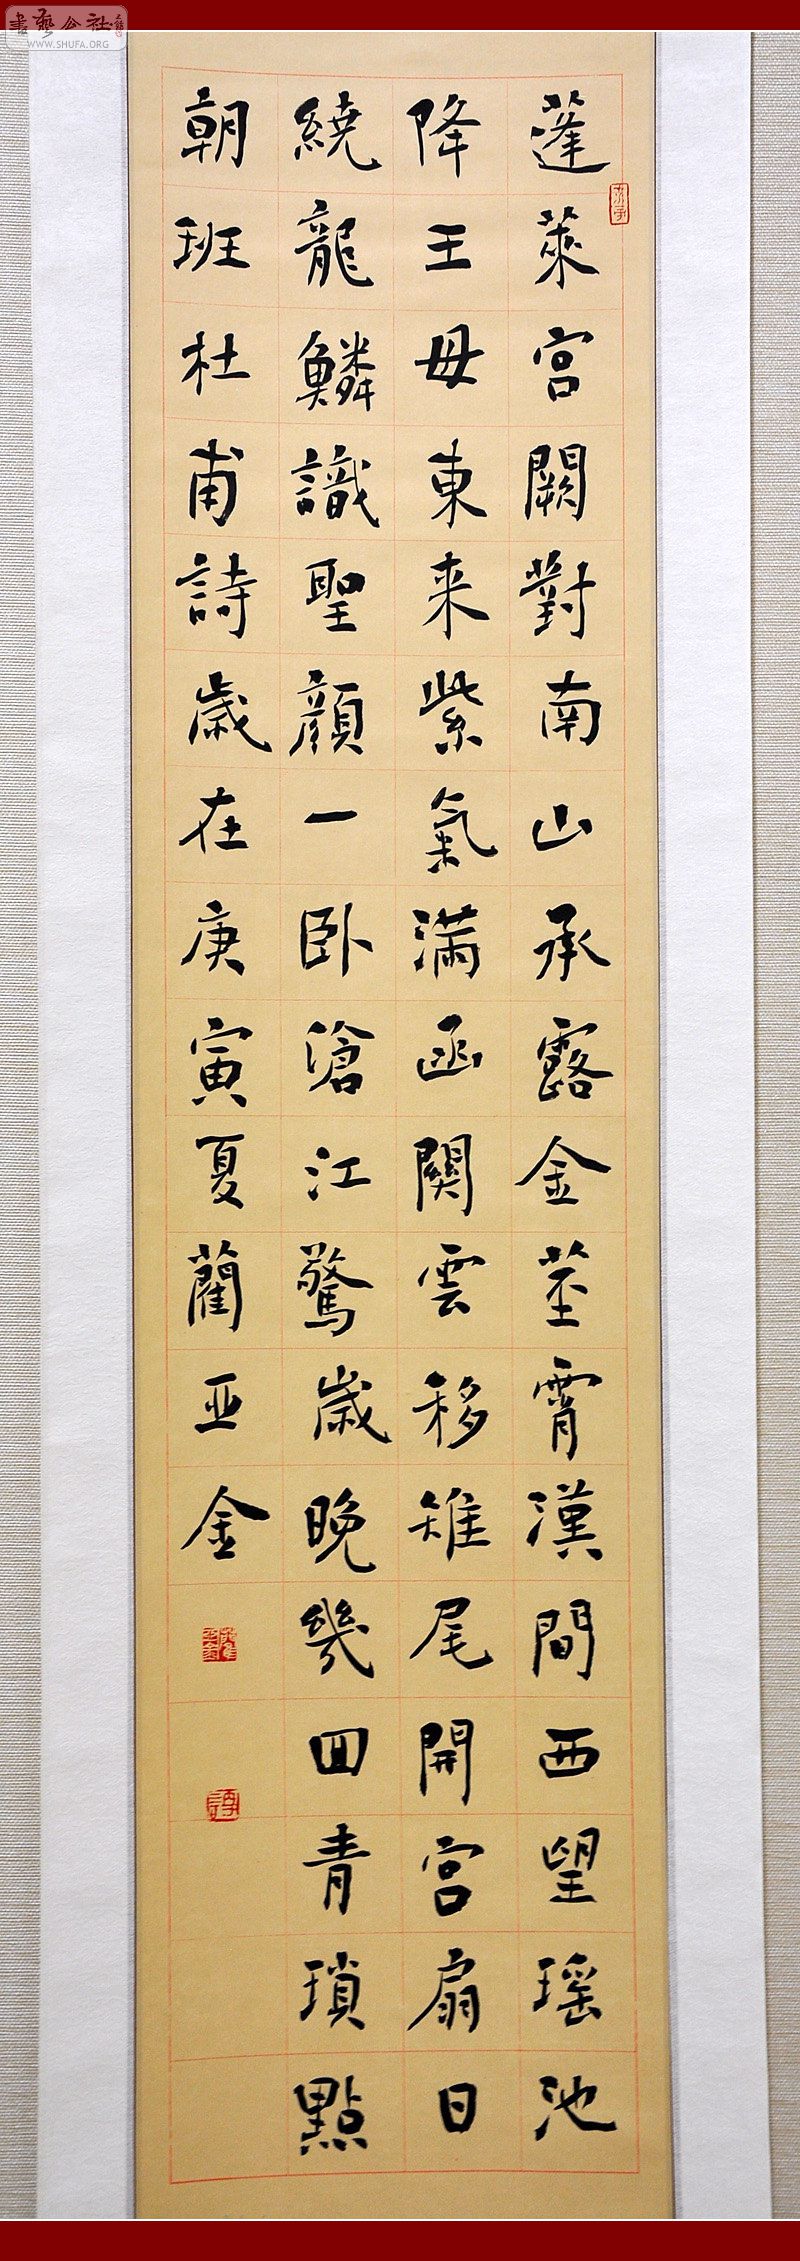 蓬萊宮闕對南山承露金莖霄漢間西望瑶池
降王母東来紫氣滿函關雲移雉尾開宮扇日
繞龍鱗識聖顏一卧滄江驚歲晚幾回青瑣點
朝班杜甫詩歲在庚寅夏藺亚金
WWW.SHUFA.ORG